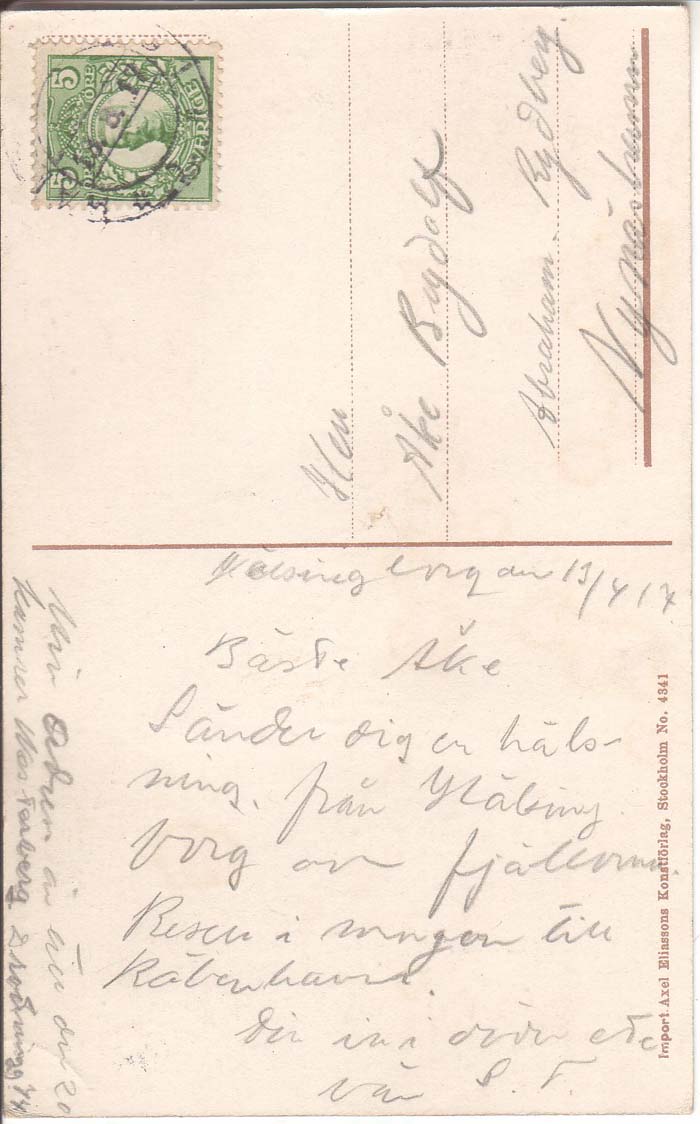 5 ÖRE 5
SVERIGE
Herr
Åke Rydolf
Abraham Rydberg
Nynäshamn
Hälsingborg den 13/4 17
Bäste Åke
Sänder dig en häls-
ning. från Hälsing
borg av
Reser i morgon till
Köbenhavn.
Din
vän S. F.
Min är till den 20
Import. Axel Eliassons Konstförlag, Stockholm No. 4341